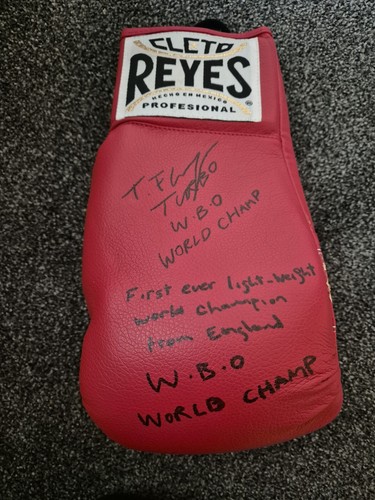 CLCTO
REYES
HECHO EN MEXICO
PROFESIONAL
®
T. F
TURBO
W.B.O
WORLD CHAMP
First ever light-weight
world champion
from England
W.B.O
WORLD CHAMP